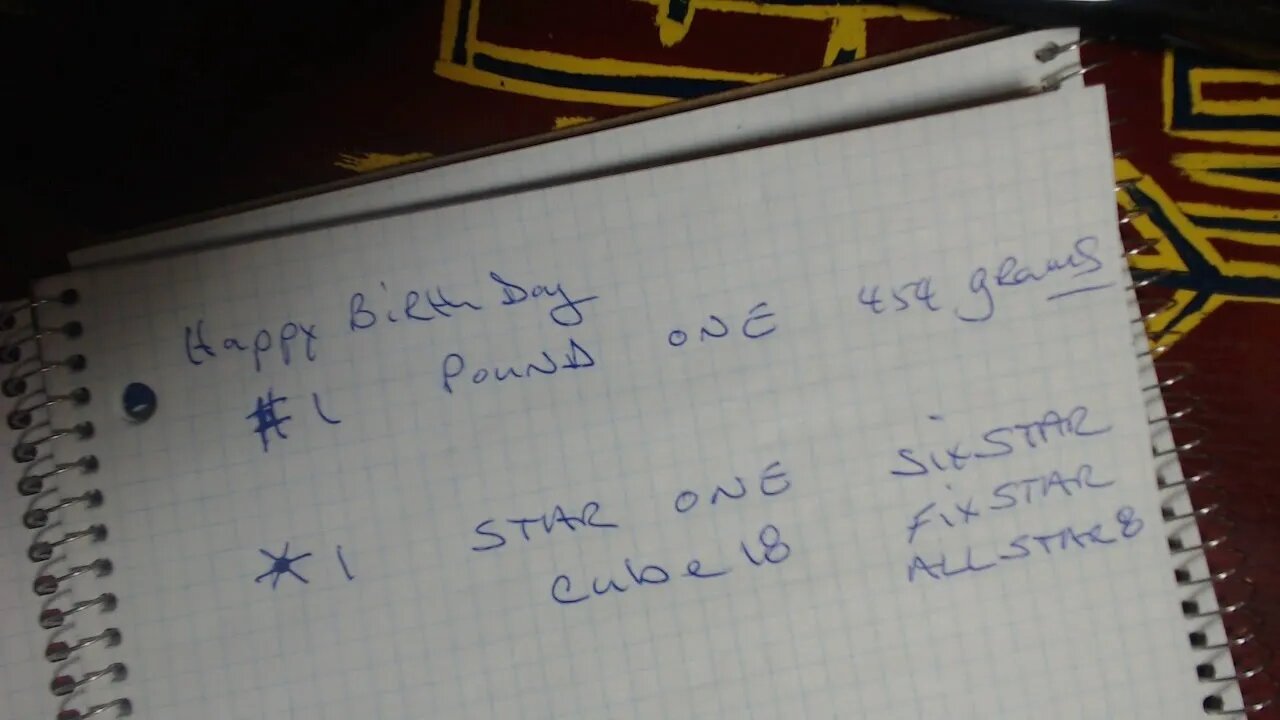 Happy Birth Day
#1 POUND ONE 454 grams
*1 STAR ONE SixSTAR
cube 18 FixSTAR
ALLSTAR8